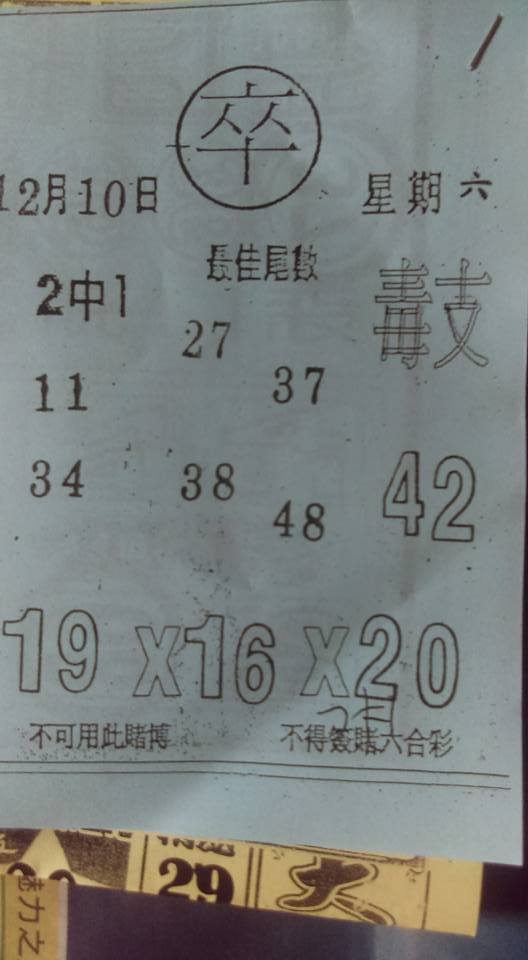 卒
12月10日 星期六
最佳尾數
2中1 毒支
27
11 37
34 38 42
48
19 X16 X20
不可用此賭博 不得簽賭六合彩
29
大
魅力之